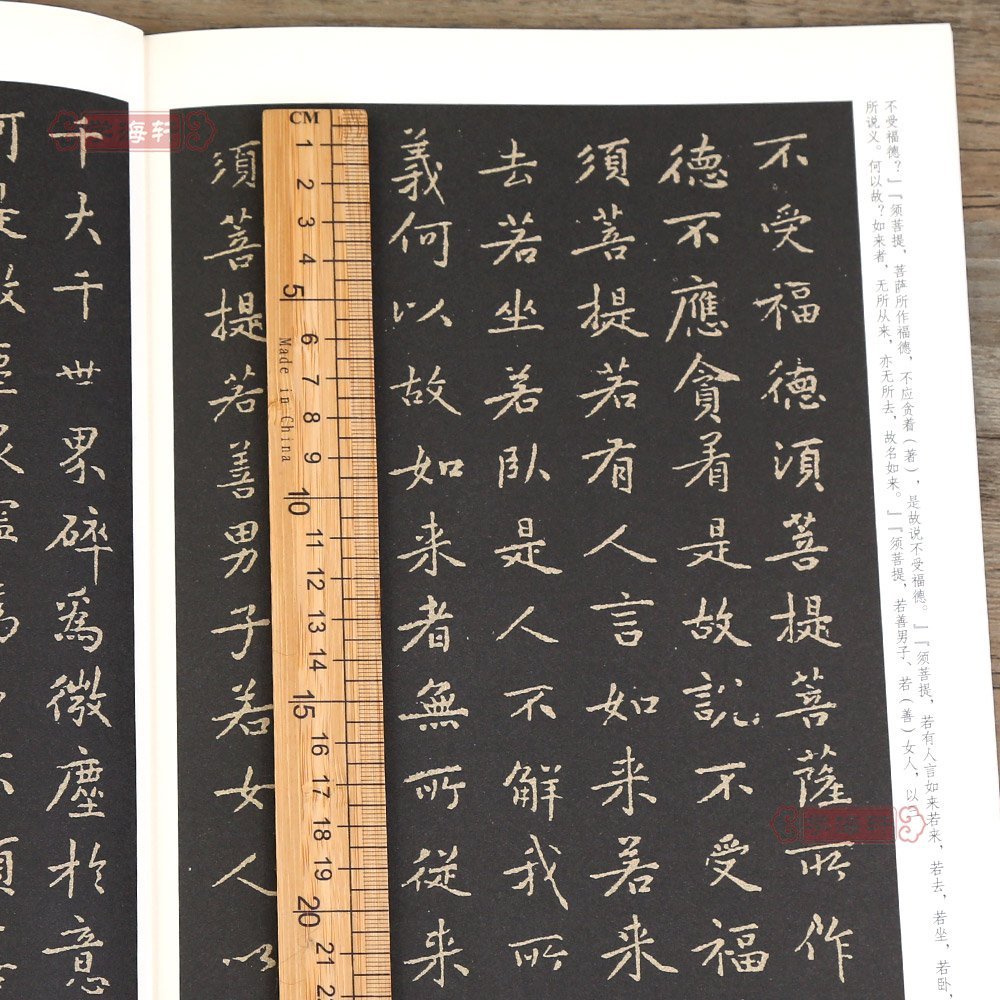 不受福德？』『须菩提，菩萨所作福德，不应贪着（著），是故说不受福德。』『须菩提，若有人言如来若来，若去，若坐，若卧，
所说义。何以故？如来者，无所从来，亦无所去，故名如来。』『须菩提，若善男子、若（善）女人，以
不受福德湏菩提菩薩所作
德不應貪着是故説不受福
須菩提若有人言如来若来
去若坐若卧是人不解我所
義何以故如来者無所從来
須菩提若善男子若女人以
CM
1
2
3
4
5
6
7
8
9
10
11
12
13
14
15
16
17
18
19
20
21
Made in China
千大千世界碎爲微塵於意
学海轩
学海轩